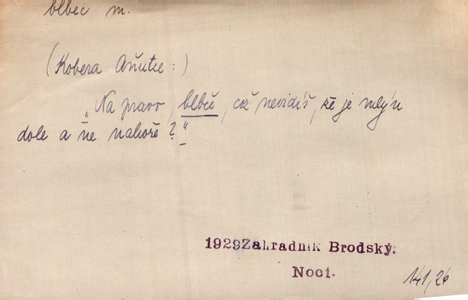 blbec m.
(Kobera Aňutce:)
„Na pravo, blbče, což nevidíš, že je mlýn
dole a ne nahoře?"
1929Zahradník Brodský.
Noci.
141,26